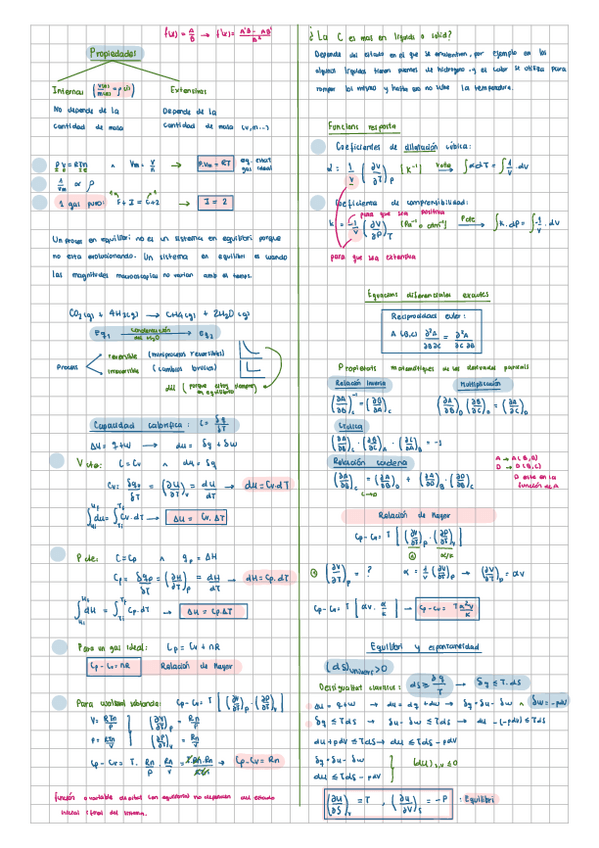 f(x) = A/B → f'(x) = (A'B - AB')/B²
Propiedades
Intensivas (V(x)/m(x) = ρ(x))
Extensivas
No depende de la
cantidad de masa
Depende de la
cantidad de masa (V, m...)
PV = RTn ∧ Vm = V/n → P.Vm = RT eq. estat gas ideal
1/Vm ∝ ρ
1 gas puro: F + I = C + 2 → I = 2
Un proces en equilibri no es un sistema en equilibri porque
no esta evolucionando. Un sistema en equilibri es quando
las magnitudes macroscopicas no varian amb el temps.
CO2(g) + 4H2(g) → CH4(g) + 2H2O(g)
Eq1 condensación del H2O → Eq2
Proceso
reversible (microprocesos reversibles)
irreversible (cambios bruscos)
dif (porque estoy siempre en equilibrio)
Capacidad calorifica: C = δq/δT
ΔU = q + w → dU = δq + δw
V cte: C = Cv ∧ dU = δq
Cv = δqv/δT = (∂U/∂T)v = dU/dT → dU = Cv.dT
∫dU = ∫Cv.dT → ΔU = Cv.ΔT
P cte: C = Cp ∧ qp = ΔH
Cp = δqp/δT = (∂H/∂T)p = dH/dT → dH = Cp.dT
∫dH = ∫Cp.dT → ΔH = Cp.ΔT
Para un gas ideal: Cp = Cv + nR
Cp - Cv = nR Relación de Mayer
Para cualquier substancia: Cp - Cv = T [(∂V/∂T)p . (∂P/∂T)v]
V = RTn/P (∂V/∂T)p = Rn/P
P = RTn/V (∂P/∂T)v = Rn/V
Cp - Cv = T . Rn/P . Rn/V → Cp - Cv = Rn
función o variable de estat (en equilibrio) no dependen del estado
inicial i final del sistema.
¿La C es mas en liquids o solid?
Depende del estado en el que se encuentren, por ejemplo en los
algunos liquids tienen puentes de hidrogeno y el calor se utiliza para
romper los mismo y hasta eso no sube la temperatura.
Funcions resposta
Coeficientes de dilatación cúbica:
α = 1/V (∂V/∂T)p [K⁻¹] → ∫αdT = ∫1/V . dV
Coeficiente de comprensibilidad:
para que sea positiva
k = -1/V (∂V/∂P)T [Pa⁻¹ o atm⁻¹] → ∫k.dP = ∫-1/V . dV
para que sea extensiva
Equacions diferenciales exactes
Reciprocidad euler:
A(B,C) ∂²A/∂B∂C = ∂²A/∂C∂B
Propietats matemàtiques de les derivades parcials
Relación Inversa
Multiplicación
(∂A/∂B)c⁻¹ = (∂B/∂A)c
(∂A/∂B)D (∂B/∂C)D = (∂A/∂C)D
Cíclica
(∂A/∂B)c . (∂B/∂C)A . (∂C/∂A)B = -1
Relación cadena
A → A(B,D)
D → D(B,C)
D este en la
función de A
(∂A/∂B)c = (∂A/∂B)D + (∂A/∂D)B . (∂D/∂B)c
C→D
Relación de Mayer
Cp - Cv = T [(∂V/∂T)p . (∂P/∂T)v]
(∂V/∂T)p = ? α = 1/V (∂V/∂T)p → (∂V/∂T)p = αV
Cp - Cv = T [αV . α/k] → Cp - Cv = Tα²V/k
Equilibri y espontaneidad
(dS)univers > 0
Desigualtat clausius: dS ≥ δq/T → δq ≤ T.dS
ΔU = q + w → dU = δq + δw → δq = dU - δw ∧ δw = -pdV
δq ≤ TdS → dU - δw ≤ TdS → dU - (-pdV) ≤ TdS
dU + pdV ≤ TdS → dU ≤ TdS - pdV
δq = dU - δw
dU ≤ TdS - pdV
(dU)s,v ≤ 0
(∂U/∂S)v = T , (∂U/∂V)s = -P : Equilibri